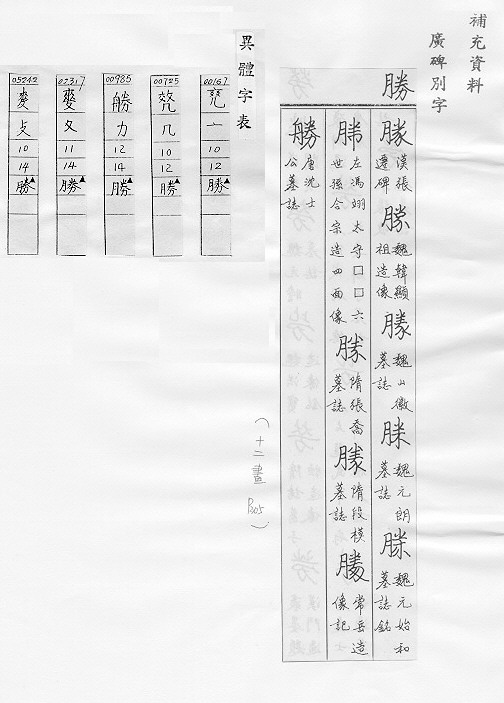 補充資料
廣碑別字
勝
漢張遷碑
魏韓顯祖造像
魏山徽墓誌
魏元朗墓誌
魏元始和墓誌銘
左馮翊太守□□六世孫合宗造四面像
隋張喬墓誌
隋段模墓誌
常岳造像記
唐沈士公墓誌
(十二畫 P305)
異體字表
00167
亠
10
12
勝
00725
几
10
12
勝
00985
力
12
14
勝
02317
夊
11
14
勝
05242
攴
10
14
勝